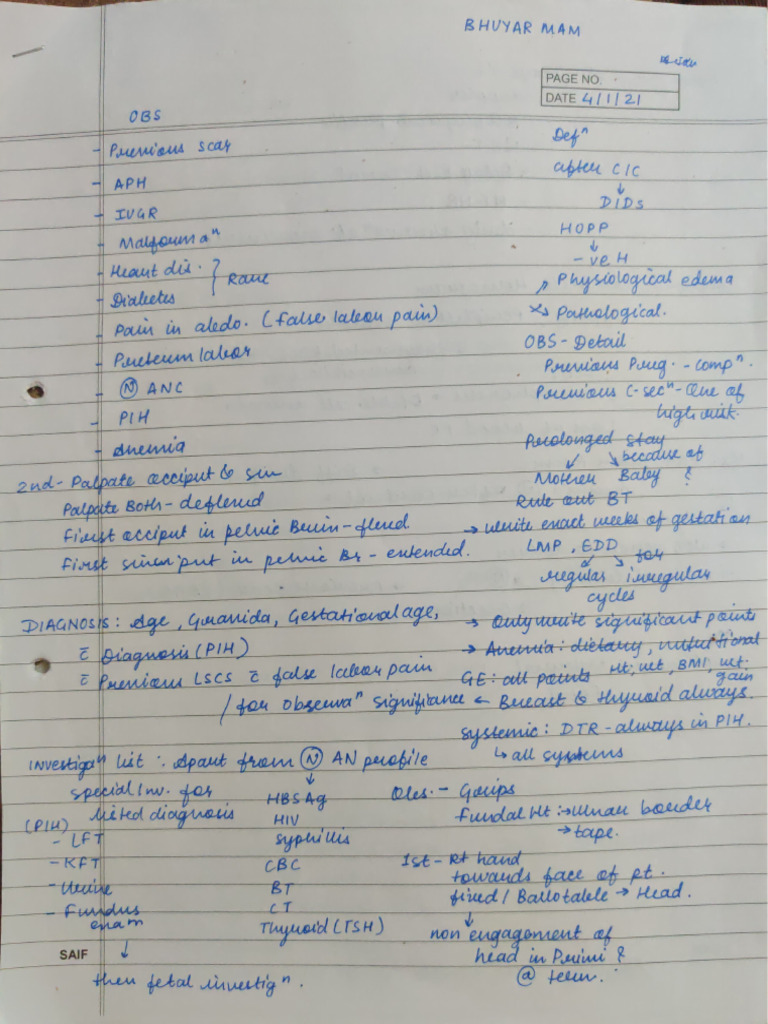 BHUYAR MAM
PAGE NO.
DATE 4/1/21
OBS
- Previous scar
- APH
- IUGR
- Malformaⁿ
- Heart dis. } Rare
- Diabetes
- Pain in abdo. (false labour pain)
- Preterm labor
- Ⓝ ANC
- PIH
- Anemia
2nd - Palpate occiput & sin
Palpate Both - deflexed
First occiput in pelvic Brim - flexed
First sinciput in pelvic Br - extended.
DIAGNOSIS: Age, Gravida, Gestational age,
c̄ Diagnosis (PIH)
c̄ Previous LSCS c̄ false labour pain
/ for Observaⁿ
Investigaⁿ list : Apart from Ⓝ AN profile
↓
special Inv. for
listed diagnosis
(PIH)
- LFT
- KFT
- Urine
- Fundus
exam
↓
then fetal investigⁿ.
HBSAg
HIV
Syphillis
CBC
BT
CT
Thyroid (TSH)
SAIF
Defⁿ
after C/C
↓
DIDs
HOPP
↓
-ve H
Physiological edema
Pathological.
OBS - Detail
Previous Preg. - compⁿ.
Previous C-secⁿ - One of
high risk.
Prolonged stay
because of
Mother Baby ?
Rule out BT
→ write exact weeks of gestation
LMP, EDD
for
regular irregular
cycles
→ Only write significant points
→ Anemia: dietary, nutritional
GE: all points Ht, wt, BMI, wt.
gain
significance ← Breast & thyroid always.
systemic: DTR - always in PIH.
↳ all systems
Obs. - Grips
Fundal Ht: → Ulnar border
→ tape.
1st - Rt hand
towards face of pt.
fixed / Ballotable → Head.
↓
non engagement of
head in Primi ?
@ term.